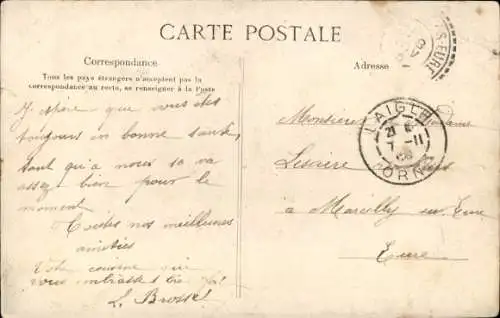 CARTE POSTALE
Correspondance
Tous les pays étrangers n'acceptent pas la
correspondance au recto, se renseigner à la Poste
Adresse
S-EURE
L'AIGLE
21
7 -11
ORNE
J'espère que vous êtes
toujours en bonne santé,
tant qu'a nous sa va
assez bien pour le
moment
Toutes nos meilleures
amitiées
Votre cousine qui
vous embrasse
L. Brosse
Monsieur Dame
à Marcilly sur Eure
Eure